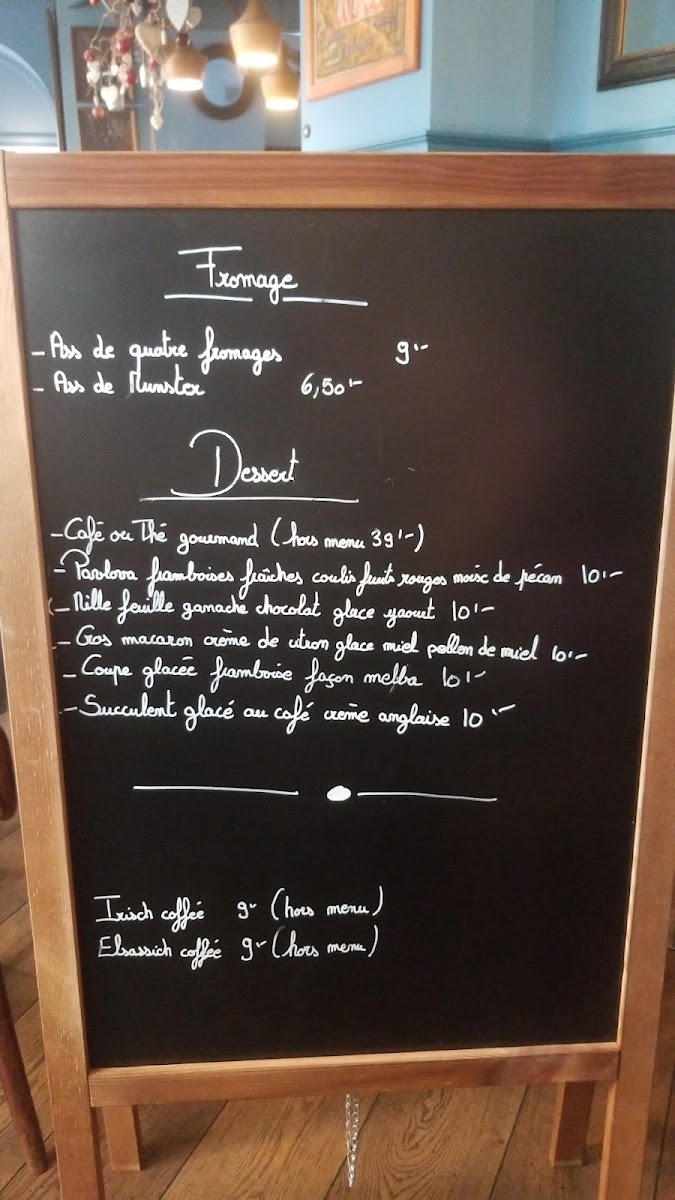 Fromage
- Ass de quatre fromages 9'-
- Ass de Munster 6,50'-
Dessert
- Café ou Thé gourmand (hors menu 39'-)
- Pavlova framboises fraîches coulis fruits rouges noix de pécan 10'-
- Mille feuille ganache chocolat glace yaourt 10'-
- Gros macaron crème de citron glace miel pollen de miel 10'-
- Coupe glacée framboise façon melba 10'-
- Succulent glacé au café crème anglaise 10'-
Irisch coffée 9'- (hors menu)
Elsassich coffée 9'- (hors menu)